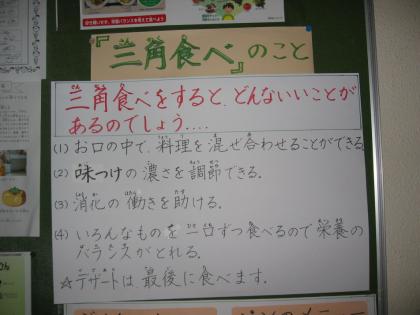 『三角食べ』のこと
三角食べをすると、どんないいことが
あるのでしょう....
(1) お口の中で、料理を混ぜ合わせることができる
(2) 味つけの濃さを調節できる。
(3) 消化の働きを助ける。
(4) いろんなものを一口ずつ食べるので栄養の
バランスがとれる。
☆デザートは最後に食べます。